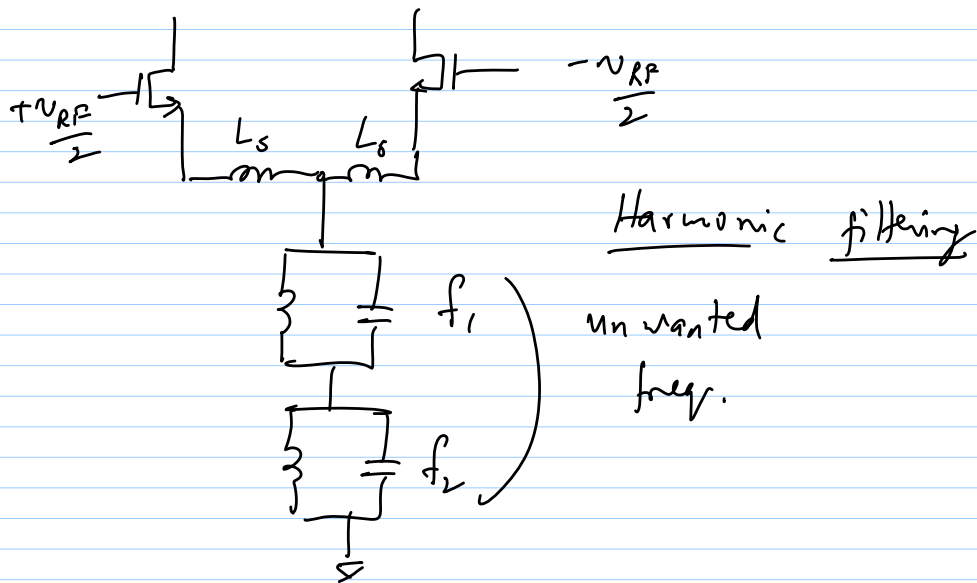 +v_RF/2
-v_RF/2
L_s L_s
Harmonic filtering
f_1
unwanted
freq.
f_2